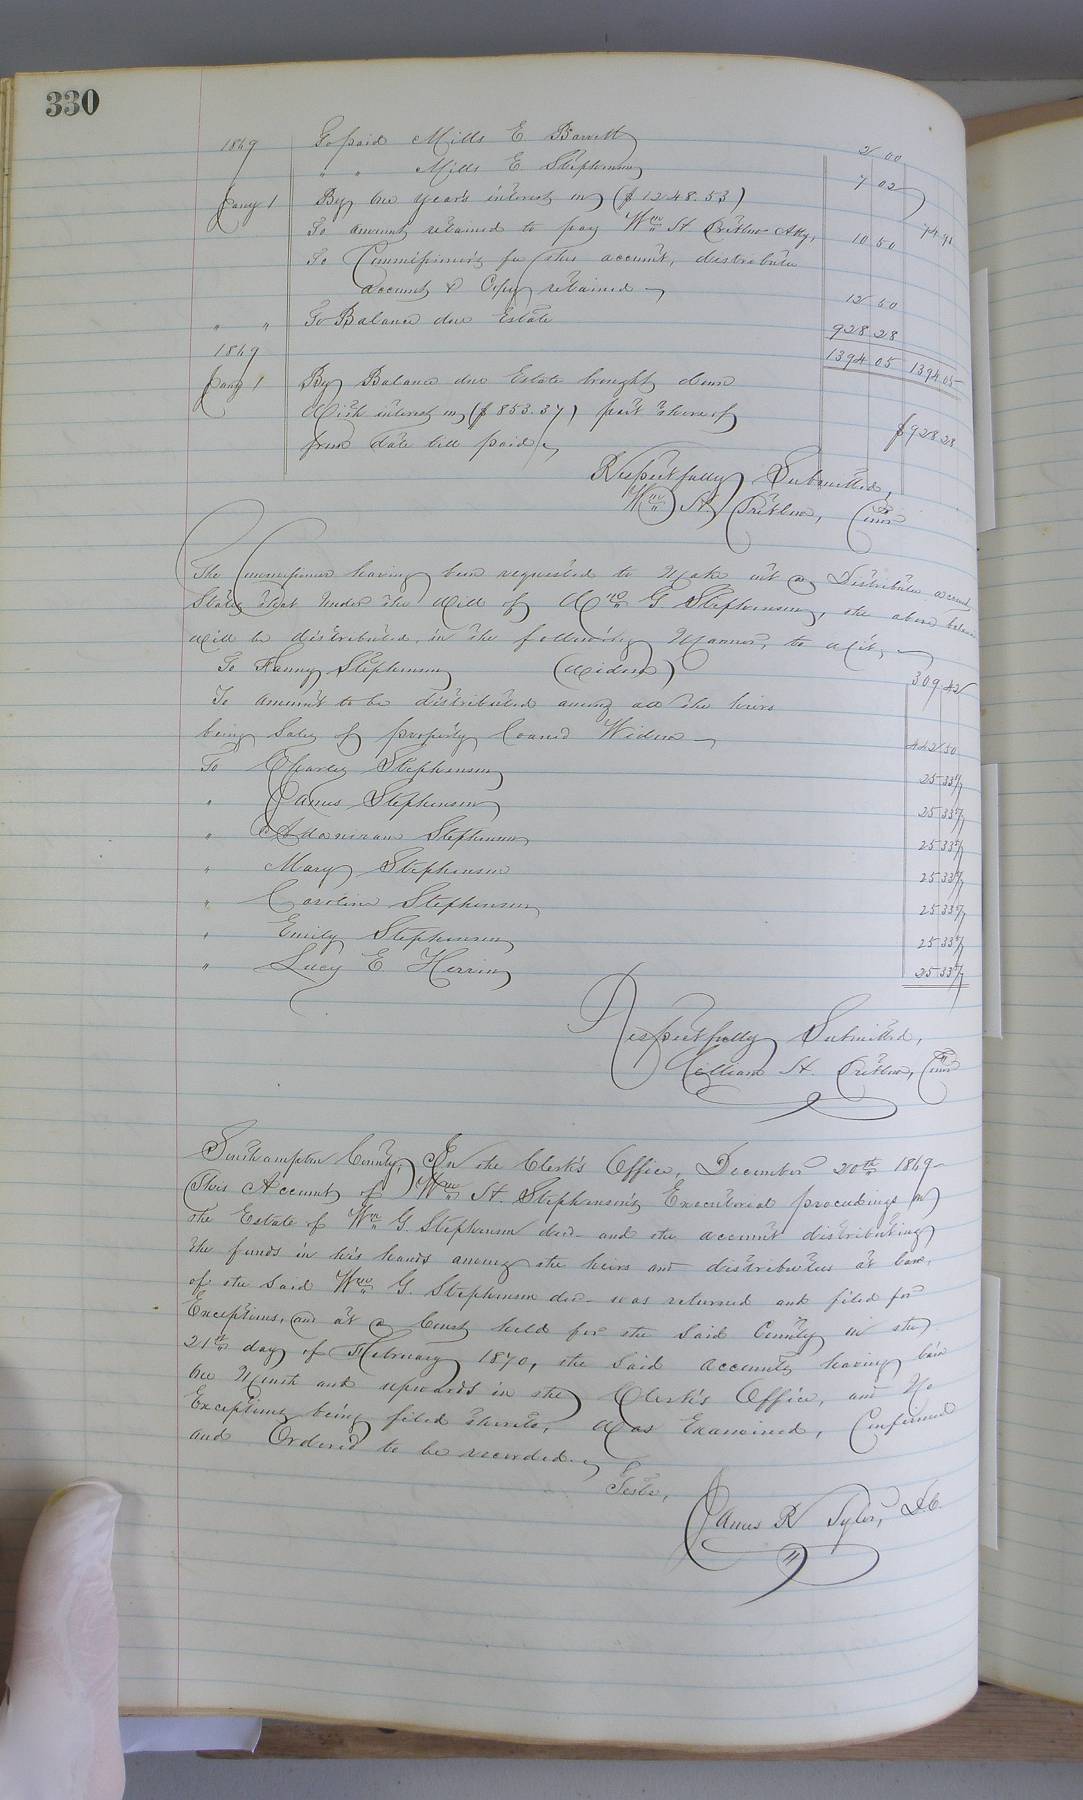 330
1869 To paid Mills E Barrett 2 00
" " Mills E. Stephenson 7 02
Jany 1 By one year's interest on ($1248.53) 74 91
To amount retained to pay Wm H Critlow Atty, 10 50
To Commissioners fee this account, distributive
account & Copy retained 12 50
" " To Balance due Estate 928 28
1394 05 1394 05
1869
Jany 1 By Balance due Estate brought down $928 28
With interest on ($853.37) part thereof
from date till paid
Respectfully Submitted,
Wm H. Critlow, Comr
The Commissioner having been requested to Make out a Distributive account,
States that Under the Will of Wm G. Stephenson, the above balance
will be distributed in the following Manner, to Wit,
To Fanny Stephenson (Widow) 309 42
To amount to be distributed among all the heirs
being Sales of property loaned Widow 442 50
To Charles Stephenson 25 33 4/7
" James Stephenson 25 33 4/7
" Adoniram Stephenson 25 33 4/7
" Mary Stephenson 25 33 4/7
" Caroline Stephenson 25 33 4/7
" Emily Stephenson 25 33 4/7
" Lucy E Herring 25 33 4/7
Respectfully Submitted,
William H. Critlow, Comr
Southampton County, In the Clerk's Office, December 20th 1869
This Account of Wm H. Stephenson's Executorial proceedings on
the Estate of Wm G. Stephenson decd and the account distributing
the funds in his hands among the heirs and distributees at law,
of the said Wm G. Stephenson decd was returned and filed for
Exceptions, and at a Court held for the Said County on the
21st day of February 1870, the Said accounts having lain
One Month and upwards in the Clerk's Office, and No
Exceptions being filed thereto, Was Examined, Confirmed
and Ordered to be recorded.
Teste,
James R Tyler, D.C.